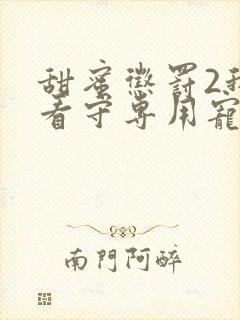 甜蜜懲罰2我
看守専用寵
南門阿醉